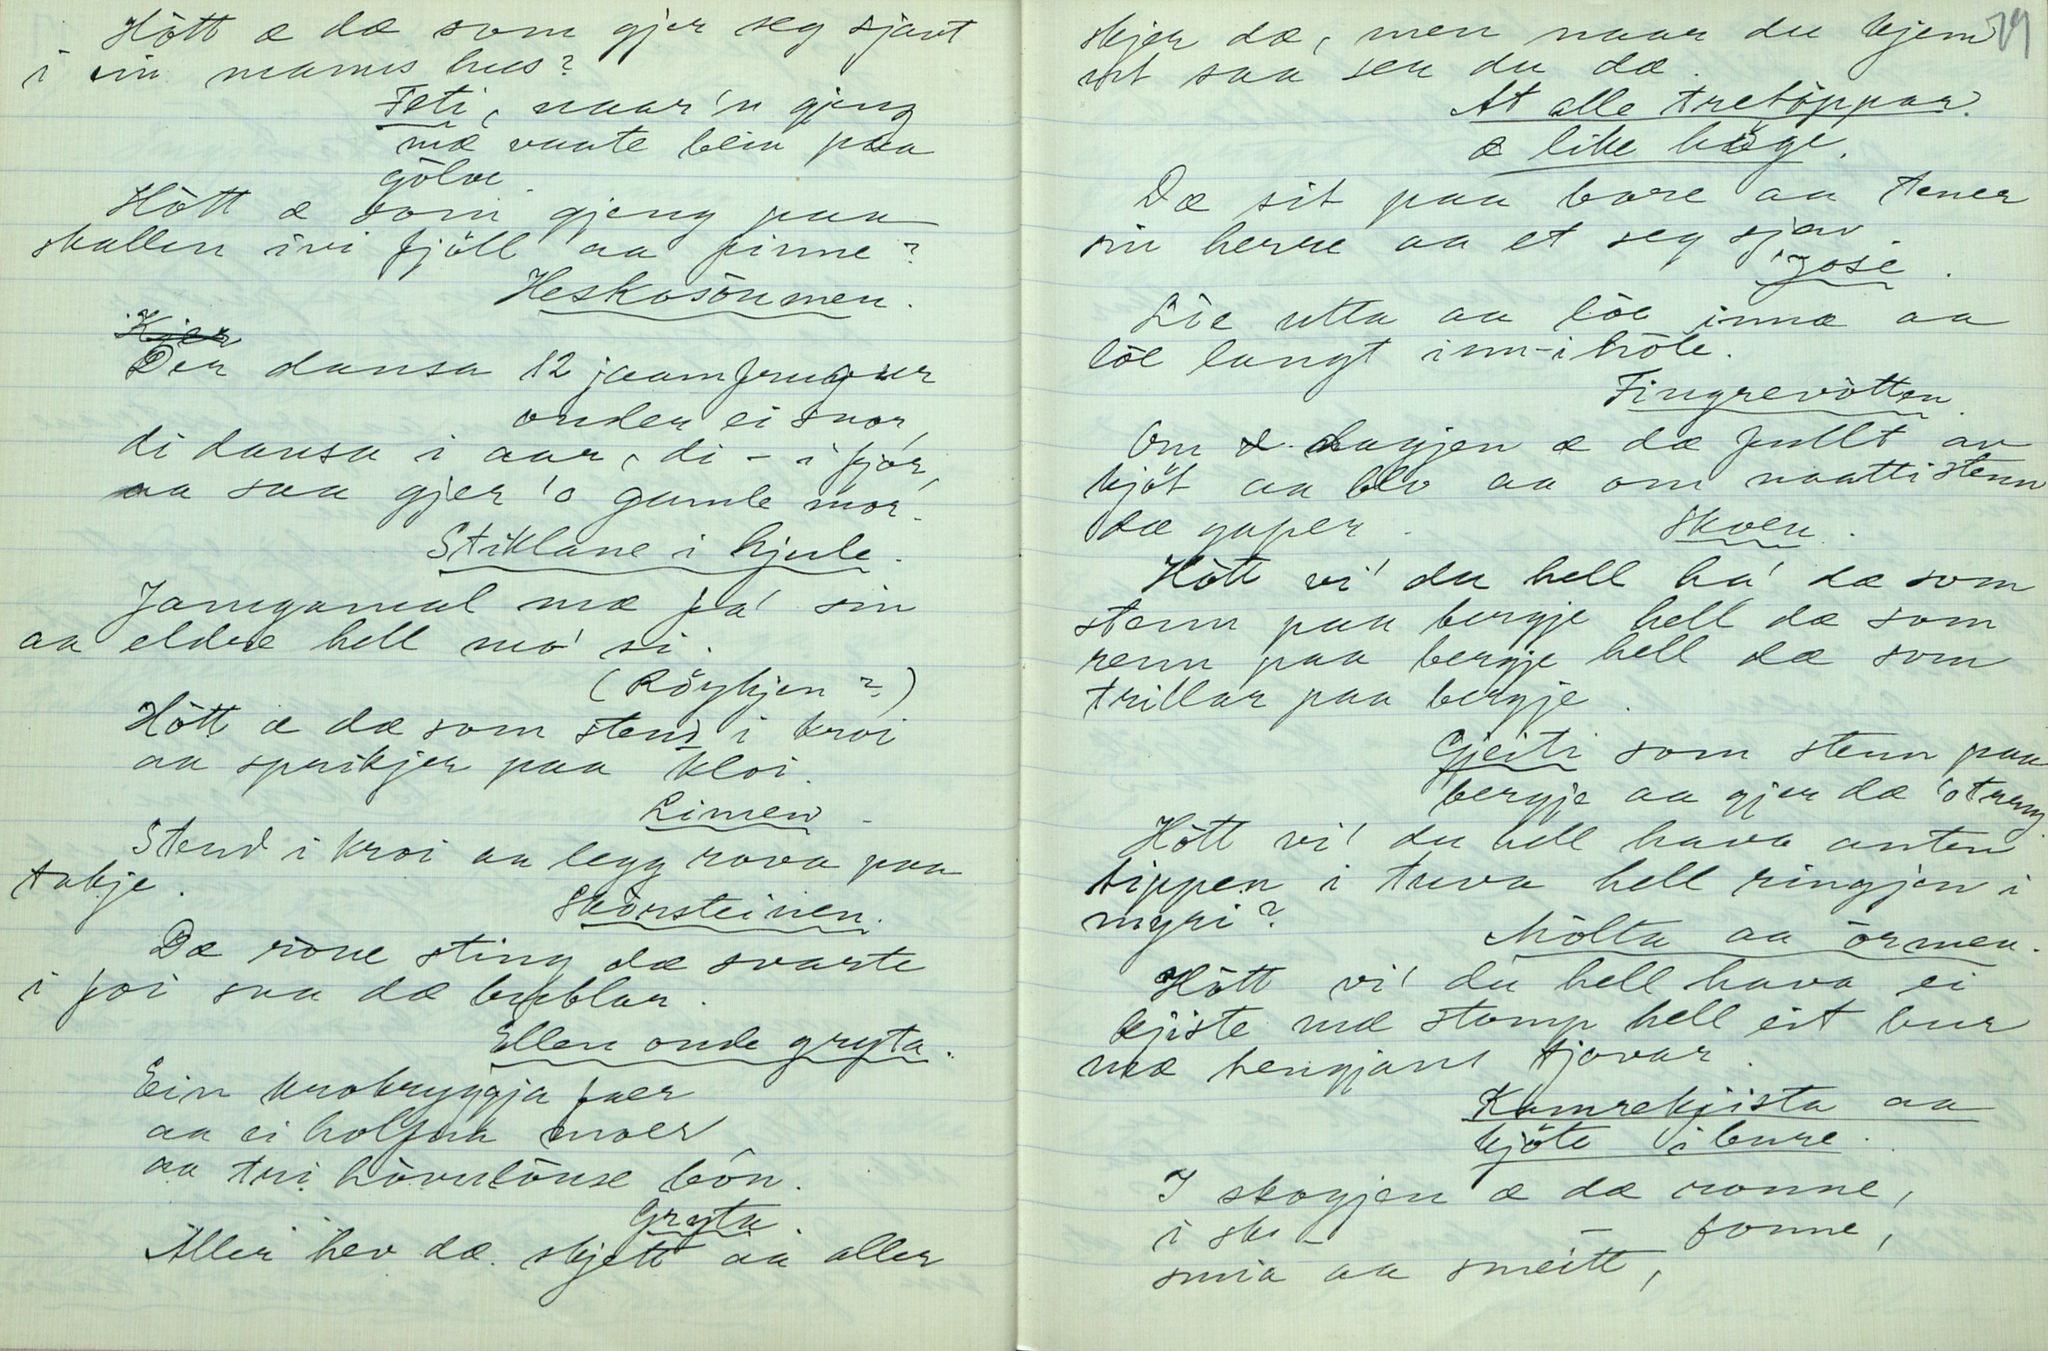 Hôtt æ dæ som gjer seg sjant
i sin manns hus?
Feti, naar'n gjeng
mæ vaate bein paa
gôlve.
Hôtt æ som gjeng paa
skallen ivi fjöll aa finne?
Heskosôumen.
Der dansa 12 jaamfrugur
onder ei snor,
di dansa i aar, di - i fjór,
aa saa gjer'o gamle mor.
Stiklane i hjule.
Jamgamal mæ fa' sin
aa eldre hell mo' si.
(Röykjen?)
Hôtt æ dæ som stend i kroi
aa sprikjer paa kloi.
Limen.
Stend i kroi aa legg rova paa
takje.
Skôrsteinen.
Dæ rôue sting dæ svarte
i foi saa dæ bublar.
Ellen onde gryta.
Ein krokryggja faer
aa ei holfaa moer
aa tri hôvulôuse bôn.
Gryta.
Aller hev dæ skjett aa aller
skjer dæ, men naar du kjem
ut saa ser du dæ.
At alle tretôppar
æ like høge.
Dæ sit paa bore aa tener
sin herre aa et seg sjav.
'jose.
Lôe utta aa lôe innæ aa
lôe langt inn-i hôle.
Fingrevôtten.
Om dagjen æ dæ fullt av
kjöt aa blo aa om naatti stenn
dæ gaper.
Skoen.
Hôtt vi' du hell ha' dæ som
stenn paa bergje hell dæ som
renn paa bergje hell dæ som
trillar paa bergje.
Gjeiti som stenn paa
bergje aa gjer dæ'o treng.
Hôtt vi' du hell hava anten
tippen i tuva hell ringjen i
myri?
Môlta aa ôrmen.
Hôtt vi' du hell hava ei
kjiste mæ stomp hell eit bur
mæ hengjant tjovar.
Kamrekjista aa
kjöte i bure.
I skogjen æ dæ ronne,
i sk - - fonne,
smia aa smeitt,
79